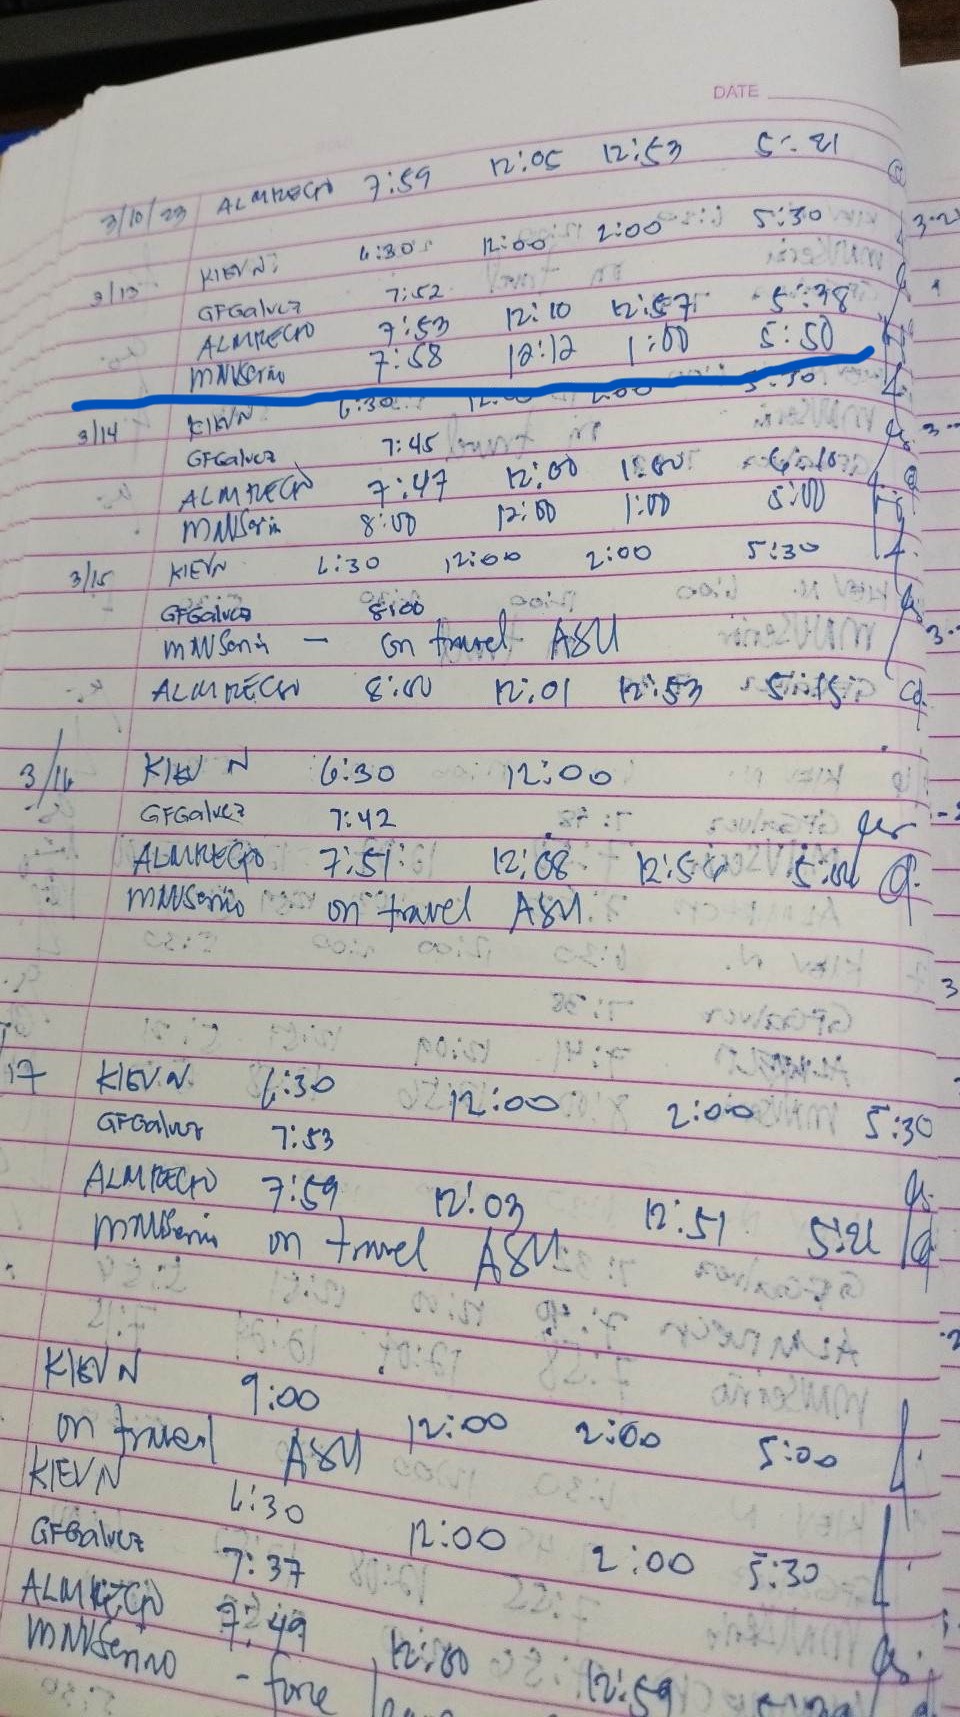 DATE
3/10/23 ALMRECIO 7:59 12:05 12:53 5:21
KIEVN 6:30 12:00 2:00 5:30
3/13 GFGalvez 7:52
ALMRECIO 7:53 12:10 12:57 5:38
MNVSerino 7:58 12:12 1:00 5:50
3/14 KIEVN 6:30 12:00 2:00 5:30
GFGalvez 7:45
ALMRECIO 7:47 12:00 1:00
MNVSerin 8:00 12:00 1:00 5:00
3/15 KIEVN 6:30 12:00 2:00 5:30
GFGalvez 8:00
MNVSerin - on travel ASU
ALMRECIO 8:00 12:01 12:53 5:15
3/16 KIEV N 6:30 12:00
GFGalvez 7:42
ALMRECIO 7:51 12:08 12:54
MNVSerino on travel ASU
17 KIEV.N 6:30 12:00 2:00 5:30
GFGalvez 7:53
ALMRECIO 7:59 12:03 12:51 5:21
MNVSerin on travel ASU
KIEV N 9:00 12:00 2:00 5:00
on travel ASU
KIEVN 6:30 12:00 2:00 5:30
GFGalvez 7:37
ALMRECIO 7:49 12:00 12:59
MNVSerino - force